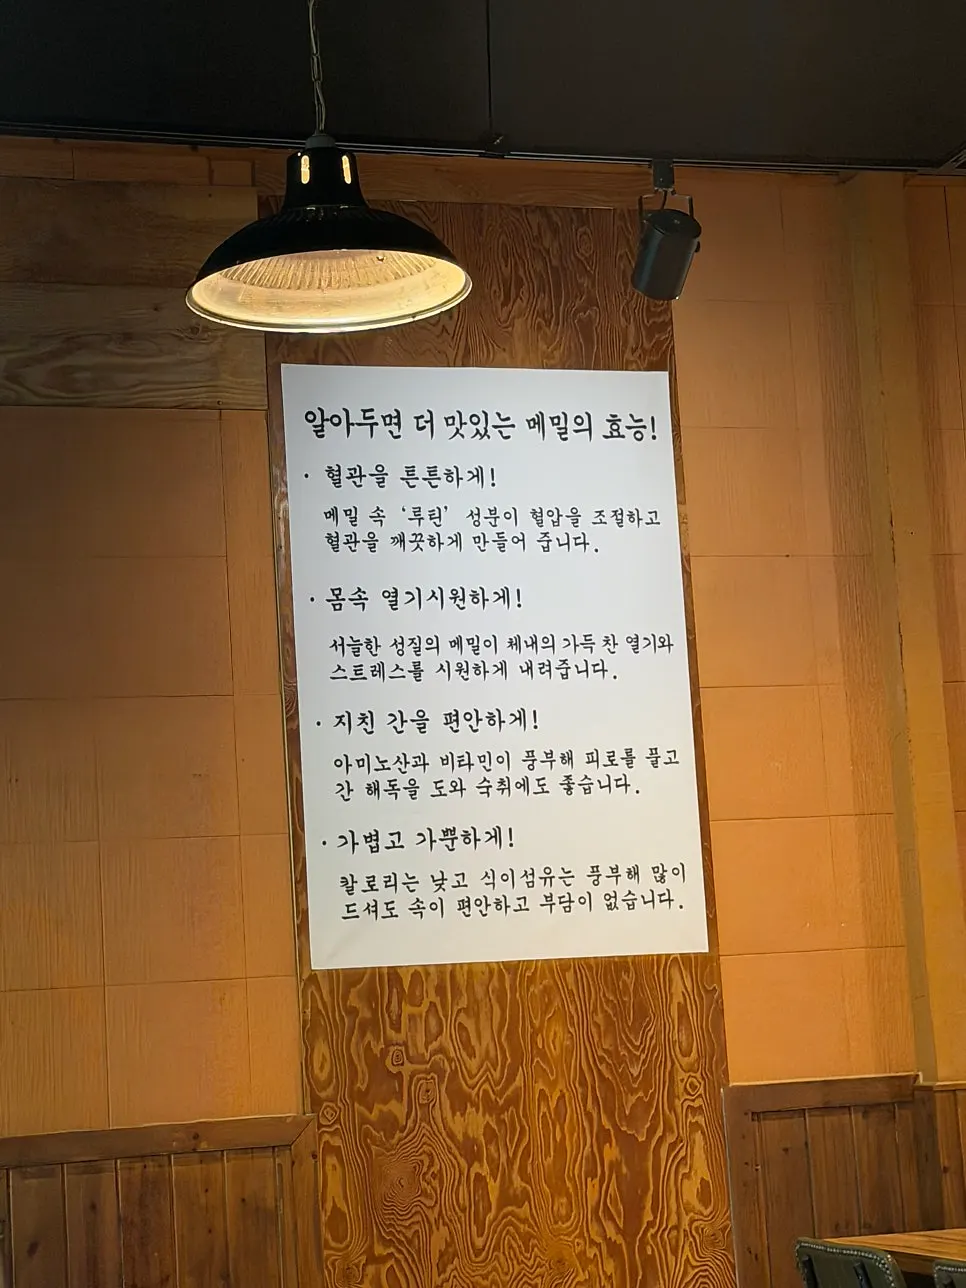 알아두면 더 맛있는 메밀의 효능!
· 혈관을 튼튼하게!
메밀 속 '루틴' 성분이 혈압을 조절하고
혈관을 깨끗하게 만들어 줍니다.
· 몸속 열기시원하게!
서늘한 성질의 메밀이 체내의 가득 찬 열기와
스트레스를 시원하게 내려줍니다.
· 지친 간을 편안하게!
아미노산과 비타민이 풍부해 피로를 풀고
간 해독을 도와 숙취에도 좋습니다.
· 가볍고 가뿐하게!
칼로리는 낮고 식이섬유는 풍부해 많이
드셔도 속이 편안하고 부담이 없습니다.